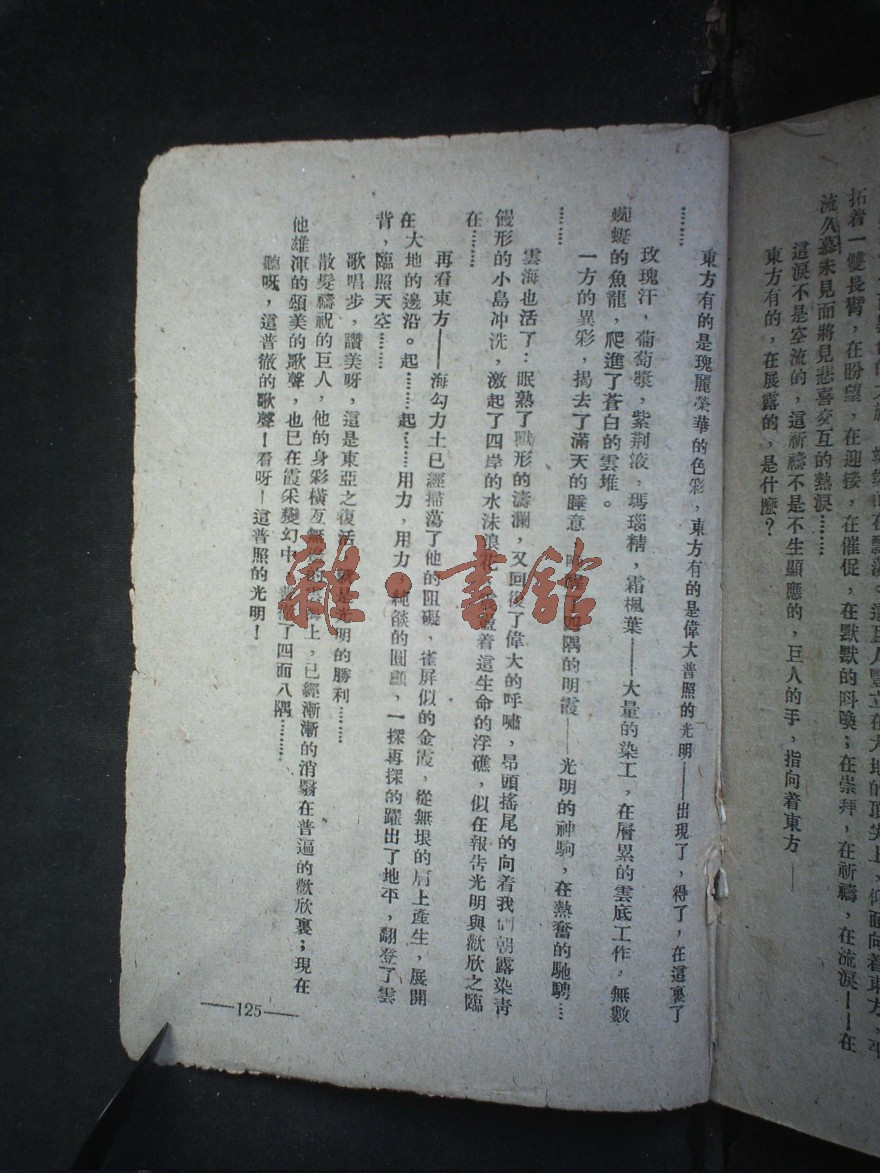 拓着一雙長臂，在盼望，在迎接，在催促，在默默的叫喚；在崇拜，在祈禱，在流淚——在
流久慕未見而將見悲喜交互的熱淚………
這淚不是空流的，這祈禱不是不生顯應的，巨人的手，指向着東方——
東方有的，在展露的，是什麼？
東方有的是瑰麗榮華的色彩，東方有的是偉大普照的光明——出現了，得了，在這裏了
………
玫瑰汗，葡萄漿，紫荆液，瑪瑙精，霜楓葉——大量的染工，在層累的雲底工作，無數
蜿蜒的魚龍，爬進了蒼白的雲堆。
一方的異彩，揭去了滿天的睡意，隅的明霞——光明的神駒，在熱奮的馳騁…
………
雲海也活了；眠熟了獸形的濤瀾，又回復了偉大的呼嘯，昂頭搖尾的向着我們朝露染青
饅形的小島冲洗，激起了四岸的水沫浪花，着這生命的浮礁，似在報告光明與歡欣之臨
在………
再看東方——海勾力士已經掃蕩了他的阻礙，雀屏似的金霞，從無垠的肩上產生，展開
在大地的邊沿。起………起………用力，用力，純燄的圓顱，一探再探的躍出了地平，翻登了雲
背，臨照天空………
歌唱步，讚美呀，這是東亞之復活，是光明的勝利………
散髮禱祝的巨人，他的身彩橫亙無邊的雲海上，已經漸漸的消翳在普遍的歡欣裏；現在
他雄渾的頌美的歌聲，也已在霞采變幻中，了四面八隅………
聽呀，這普徹的歌聲！看呀！這普照的光明！
—125—
雜·書館